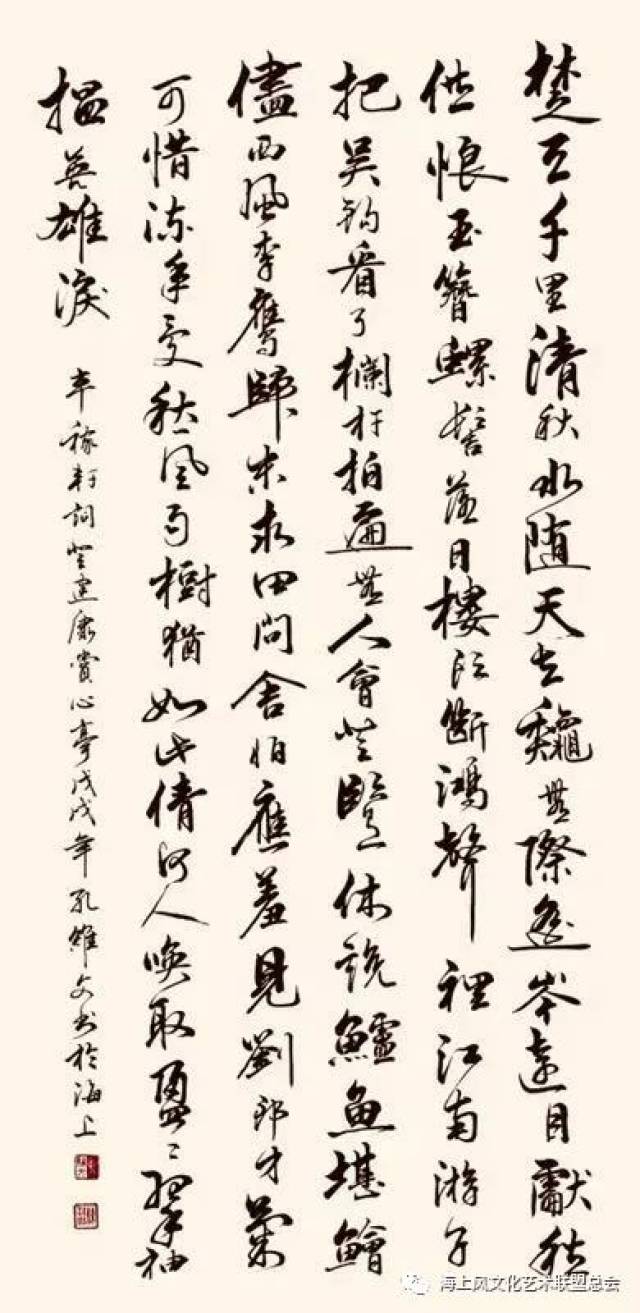 楚天千里清秋水随天去龝無際遥岑遠目獻愁
供恨玉簪螺髻落日樓頭斷鴻聲裡江南游子
把吳鈎看了欄杆拍遍無人會登臨意休說鱸魚堪鱠
儘西風季鷹歸未求田問舍怕應羞見劉郎才氣
可惜流年憂愁風雨樹猶如此倩何人喚取盈〻翠袖
揾英雄淚
辛稼軒詞登建康賞心亭戊戌年孔維文书於海上
海上风文化艺术联盟总会